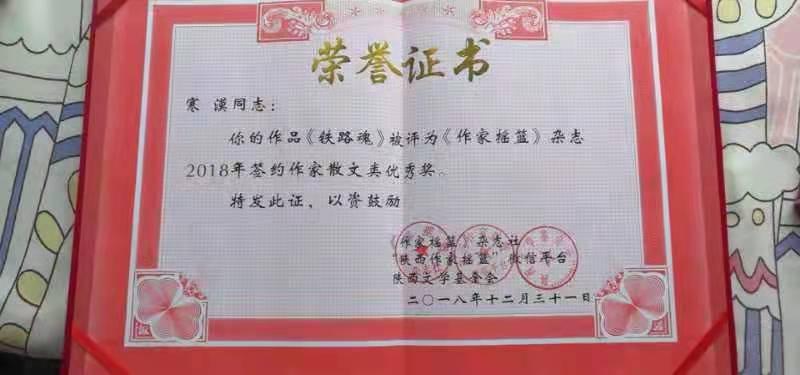 荣誉证书
寒 溪同志：
你的作品《铁路魂》被评为《作家摇篮》杂志
2018年签约作家散文类优秀奖。
特发此证，以资鼓励
《作家摇篮》杂志社
"陕西作家摇篮"微信平台
陕西文学基委会
二〇一八年十二月三十一日